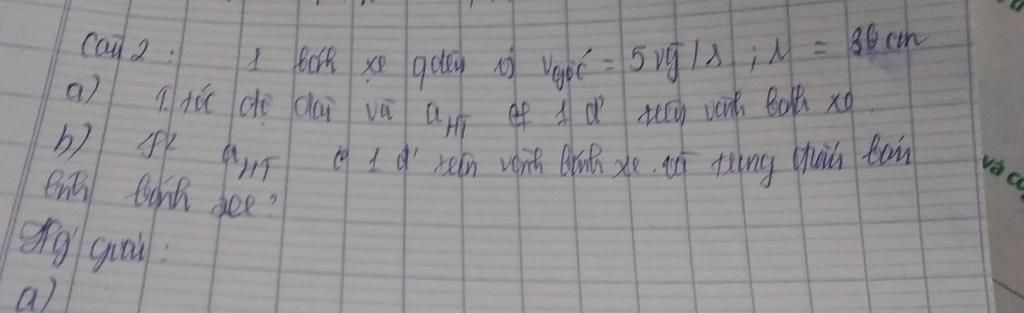 Câu 2: 1 bánh xe quay với vgóc = 5 vg/s; r = 30 cm
a) T tốc độ dài và aHT of 1 đ' trên vành bánh xe
b) aHT of 1 đ' trên vành bánh xe và trung điểm bán
kính bánh xe?
giải:
a)
và co